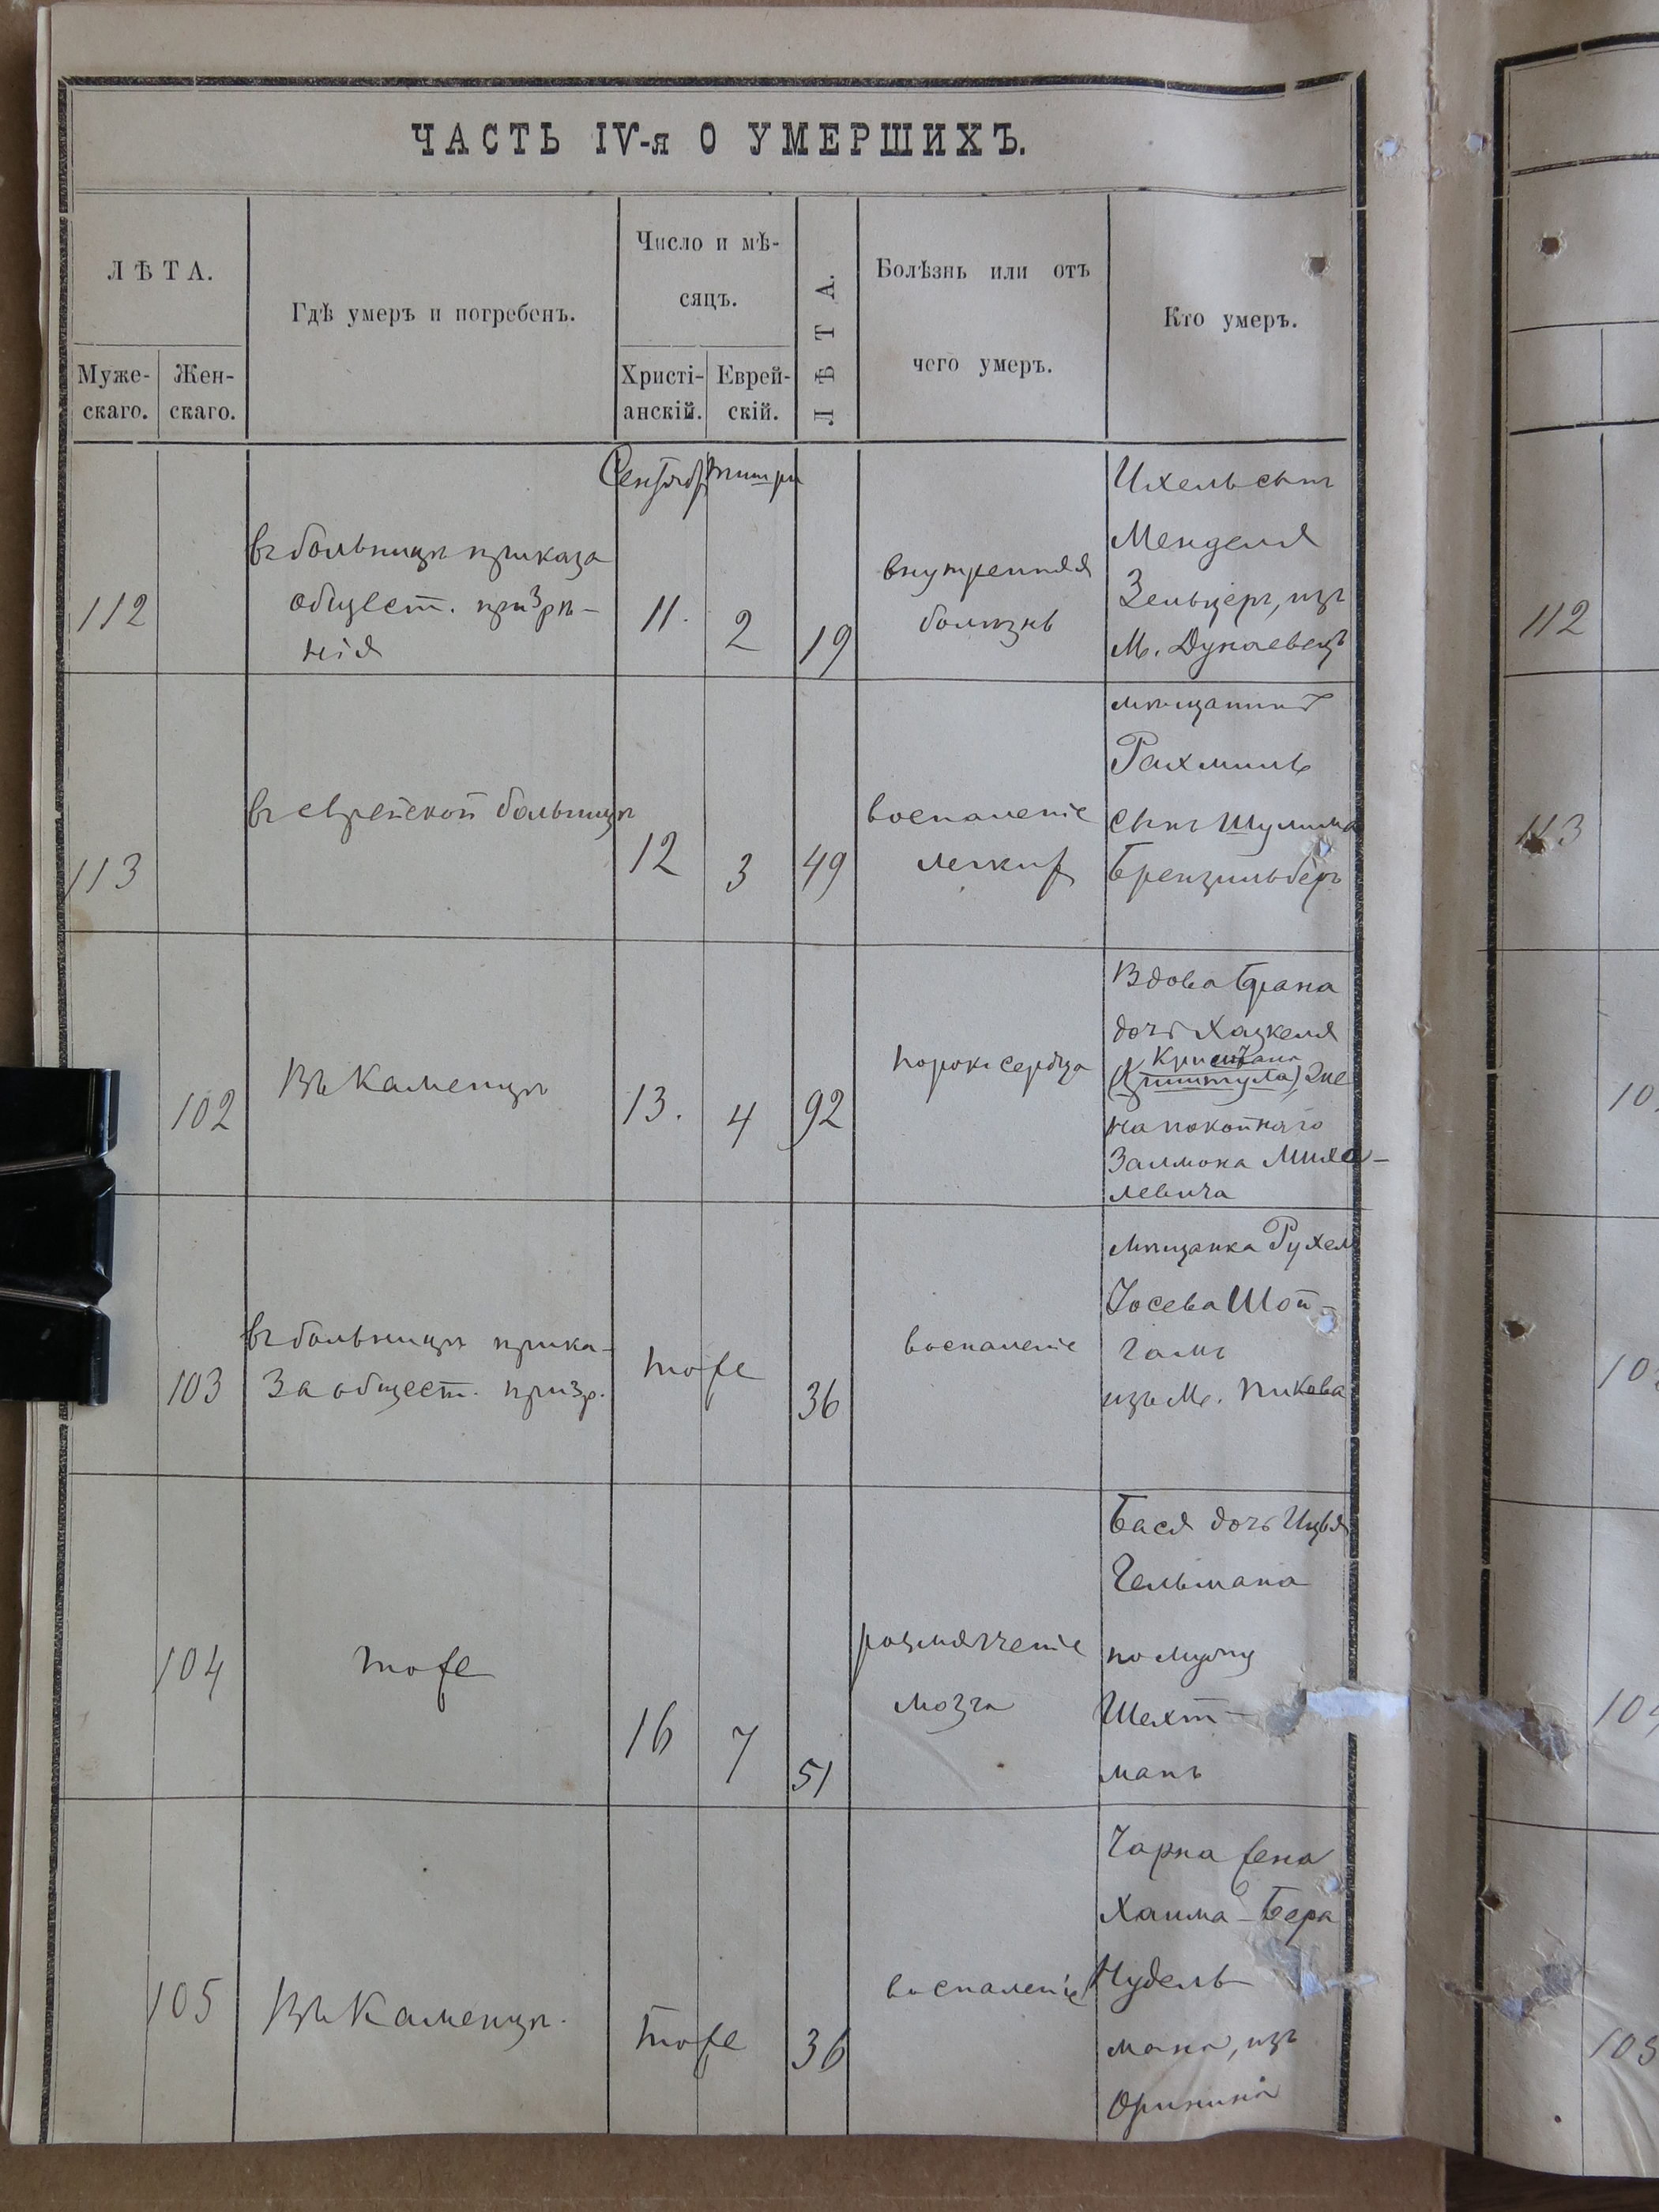 ЧАСТЬ IV-я О УМЕРШИХЪ.
ЛѢТА.
Муже-
скаго.
Жен-
скаго.
Гдѣ умеръ и погребенъ.
Число и мѣ-
сяцъ.
Христі-
анскій.
Еврей-
скій.
ЛѢТА.
Болѣзнь или отъ
чего умеръ.
Кто умеръ.
112
въ больницѣ приказа
общест. призрѣ-
нія
Сентябр
тишри
11.
2
19
внутренняя
болѣзнь
Ихель сынъ
Менделя
Зельцеръ, изъ
М. Дунаевецъ
112
113
въ еврейской больницѣ
12
3
49
воспаленіе
легкихъ
мѣщанинъ
Рахмиль
сынъ Шулима
Брензильберъ
113
102
Въ Каменцѣ
13.
4
92
порокъ сердца
Вдова Брана
дочь Хацкеля
на покойнаго
Залмона Михе-
левича
10
103
въ больницѣ прика-
за общест. призр.
тоже
36
воспаленіе
мѣщанка Рухел
Іосева Шой-
изъ М. Пикова
10
104
тоже
16
7
51
размягченіе
мозга
Бася дочь Ицья
Гельмана
по мужу
Шехт-
манъ
104
105
Въ Каменцѣ.
тоже
36
воспаленіе
Чарна жена
Хаима-Бера
Нудель-
мана, изъ
Оринина
105